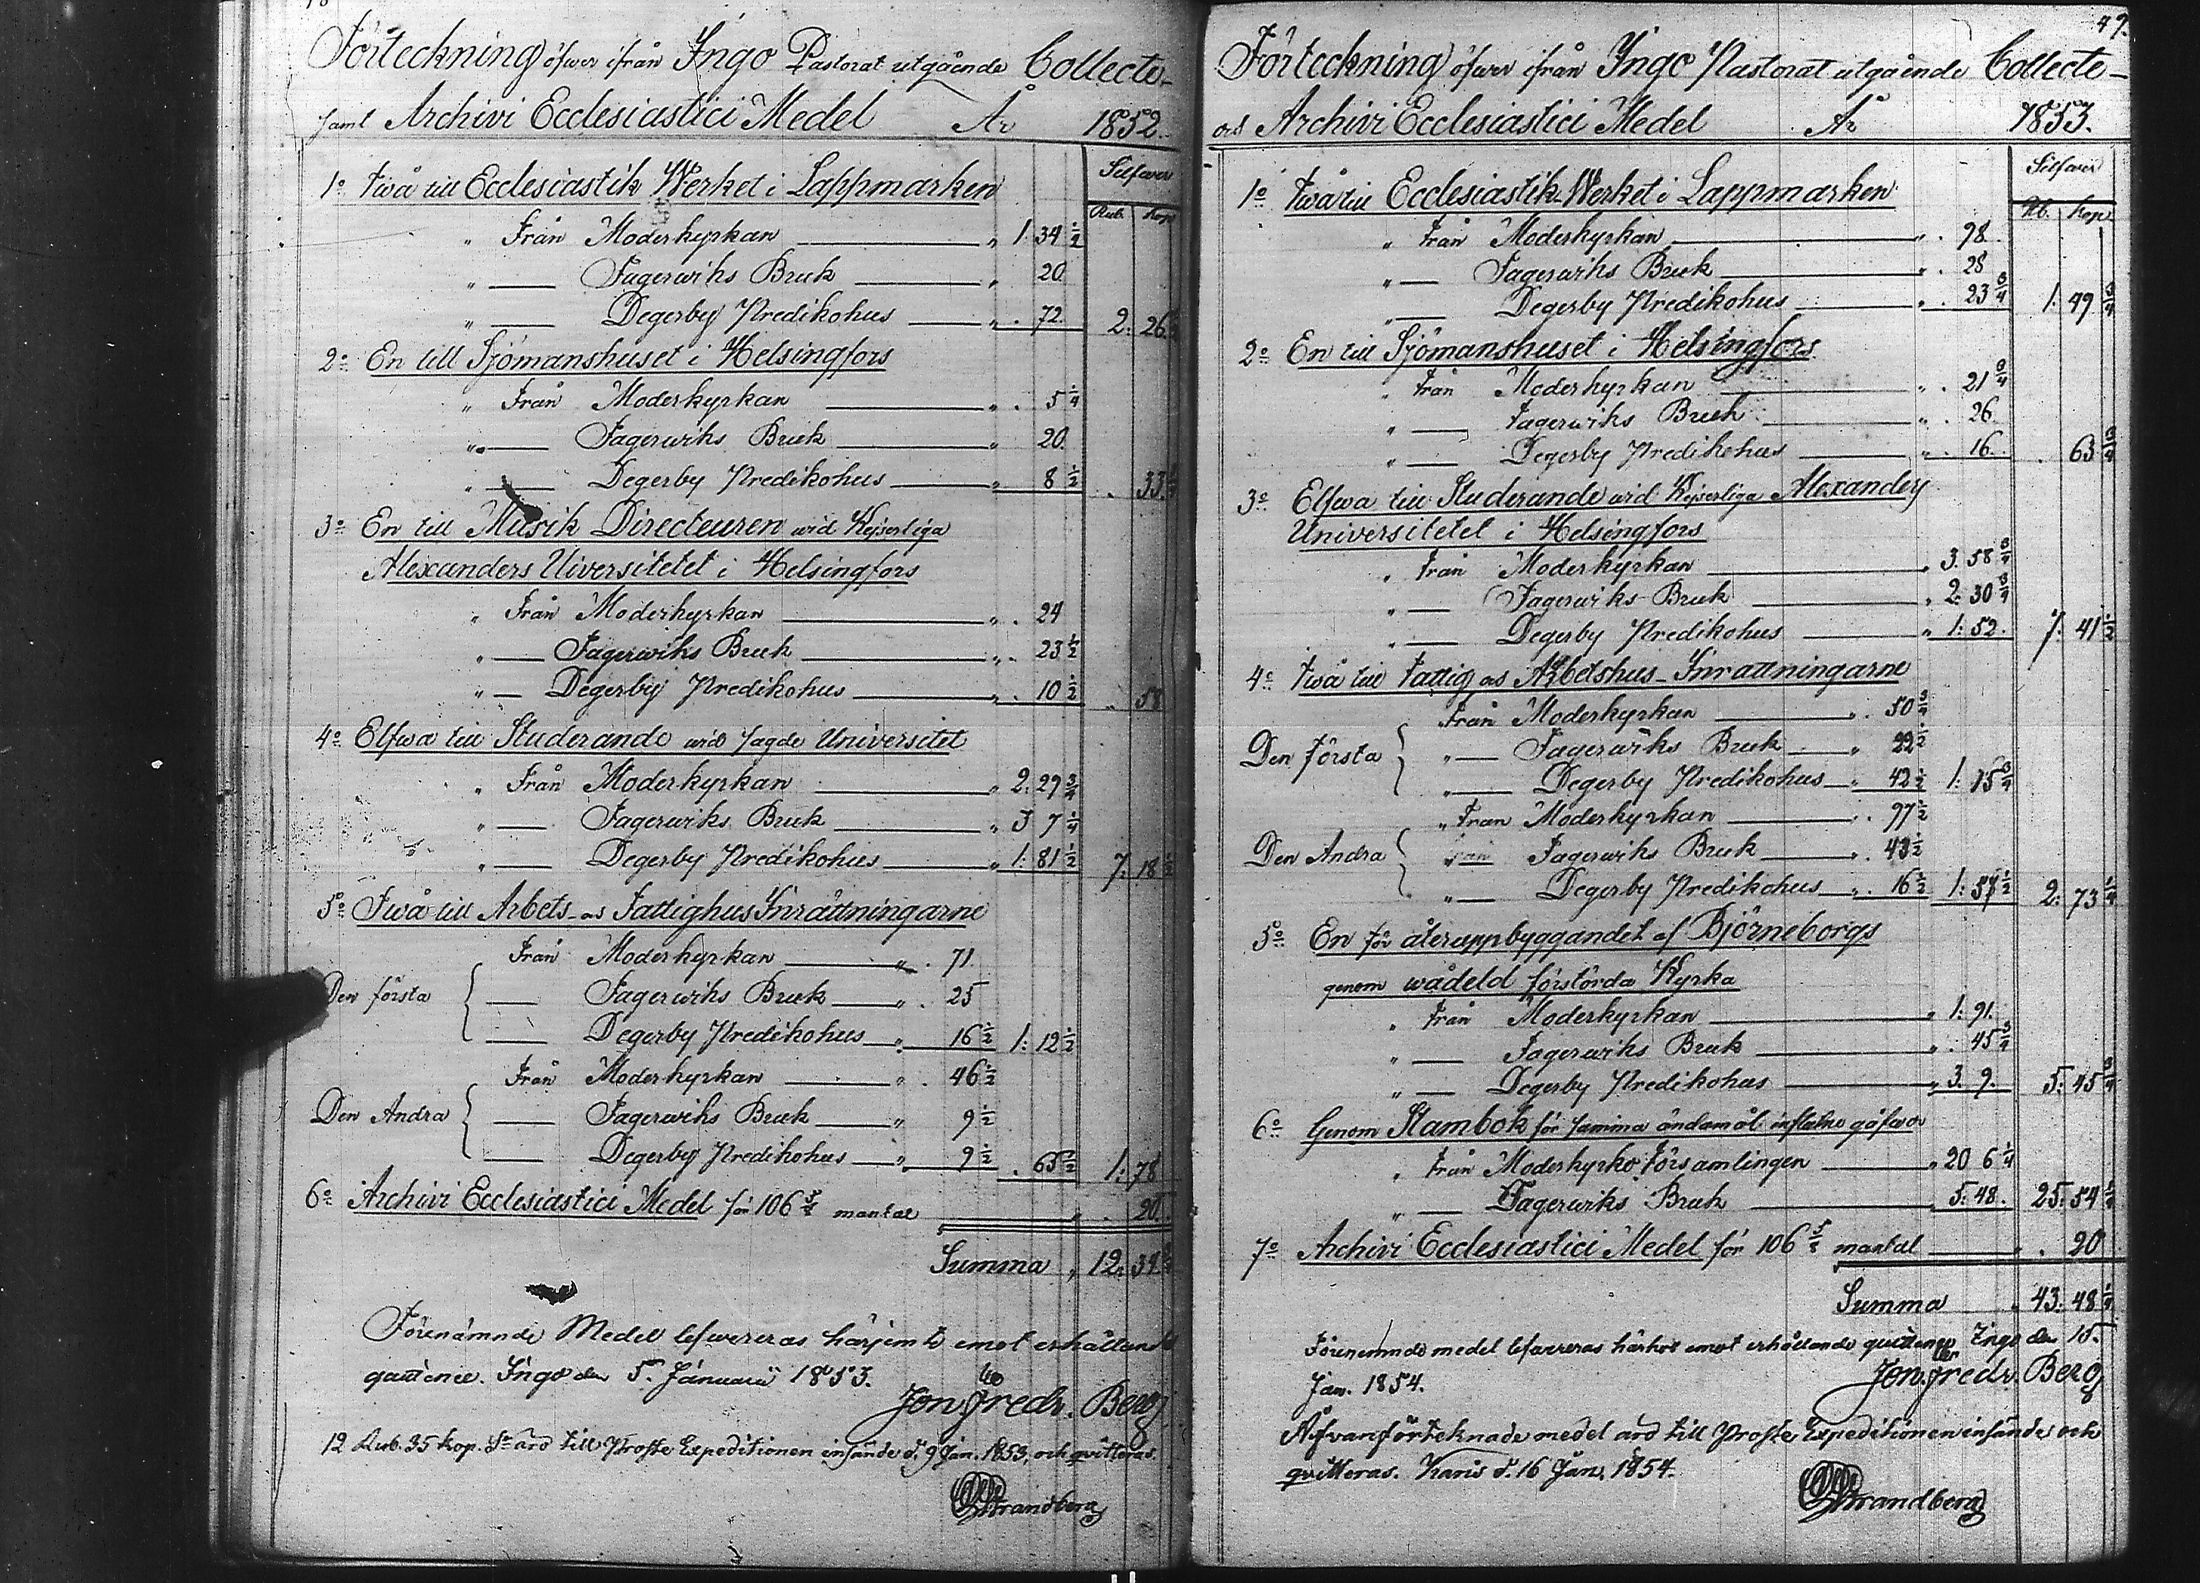 Förteckning öfwer ifrån Ingo Pastorat utgående Collecte-
samt Archivi Ecclesiastici Medel År 1852.
Silfwer
Rub. Kop
1o Twå till Ecclesiastik Werket i Lappmarken
" Från Moderkyrkan " 1. 34 1/4
" — Fagerwiks Bruk " 20.
" — Degerby Predikohus " . 72. 2: 26
2o En till Sjömanshuset i Helsingfors
" Från Moderkyrkan " . 5 1/4
" — Fagerwiks Bruk " 20.
" — Degerby Predikohus " 8 1/2 . 33
3o En till Musik Directeuren wid Kejserliga
Alexanders Uiversitetet i Helsingfors
" Från Moderkyrkan " . 24
" — Fagerwiks Bruk " . 23 1/2
" — Degerby Predikohus " . 10 1/2 " 58
4o Elfwa till Studerande wid sagde Universitet
" Från Moderkyrkan " 2: 29 3/4
" — Fagerwiks Bruk " 3 7 1/4
" — Degerby Predikohus " 1: 81 1/2 7: 18 1/2
5o Twå till Arbets- och Fattighus Inrättningarne
Från Moderkyrkan " . 71.
Den första — Fagerwiks Bruk " . 25
— Degerby Predikohus " 16 1/2 1: 12 1/2
Från Moderkyrkan " . 46 1/2
Den Andra — Fagerwiks Bruk " 9 1/2
— Degerby Predikohus " 9 1/2 . 65 1/2 1: 78
6o Archivi Ecclesiastici Medel för 106 mantal " . 20.
Summa " 12: 34
Förenämnde Medel lefwereras härjemte emot erhållande
qwittence. Ingo den 5. Januarii 1853.
Jon Fredr. Berg
12 Rub. 35 kop. Sr äro till Prosste Expeditionen insände d. 9 Jan. 1853, och qvitteras.
Strandberg
49.
Förteckning öfwer ifrån Ingo Pastorat utgående Collecte-
och Archivi Ecclesiastici Medel År 1853.
Silfwer
Rb. Kop
1o Twå till Ecclesiastik-Werket i Lappmarken
" Från Moderkyrkan " . 98.
" — Fagerwiks Bruk " . 28
" — Degerby Predikohus " . 23 3/4 1: 49 3/4
2o En till Sjömanshuset i Helsingfors
" Från Moderkyrkan " . 21 3/4
" — Fagerwiks Bruk " . 26.
" — Degerby Predikohus " . 16. . 63 3/4
3o Elfwa till Studerande wid Kejserliga Alexanders
Universitetet i Helsingfors
" Från Moderkyrkan " 3. 58 3/4
" — Fagerwiks Bruk " 2: 30 3/4
" — Degerby Predikohus " 1: 52. 7: 41 1/2
4o Twå till Fattig och Arbetshus-Inrättningarne
Från Moderkyrkan " . 50 3/4
Den första " — Fagerwiks Bruk " 22 1/2
" — Degerby Predikohus " 42 1/2 1: 15 3/4
" Från Moderkyrkan " . 97 1/2
Den Andra Från Fagerwiks Bruk " . 43 1/2
" — Degerby Predikohus " . 16 1/2 1: 57 1/2 2: 73 1/4
5o En för återuppbyggandet af Björneborgs
genom wådeld förstörda Kyrka
" Från Moderkyrkan " 1: 91.
" — Fagerwiks Bruk " . 45 3/4
" — Degerby Predikohus " 3. 9. 5: 45 3/4
6o Genom Stambok för samma ändamål influtne gåfwor
" Från Moderkyrko Församlingen " 20 6 1/4
" — Fagerwiks Bruk 5: 48. 25: 54 1/4
7o Archivi Ecclesiastici Medel för 106 mantal " . 20
Summa " 43: 48 1/4
Förenemnde medel lefwereras härhos emot erhållande qwittence. Ingo den 15.
Jan. 1854. Jon. Fredr. Berg
Åfvanförteknade medel äro till Proste Expeditionen insände och
qvitteras. Karis d. 16 Jan. 1854.
Strandberg